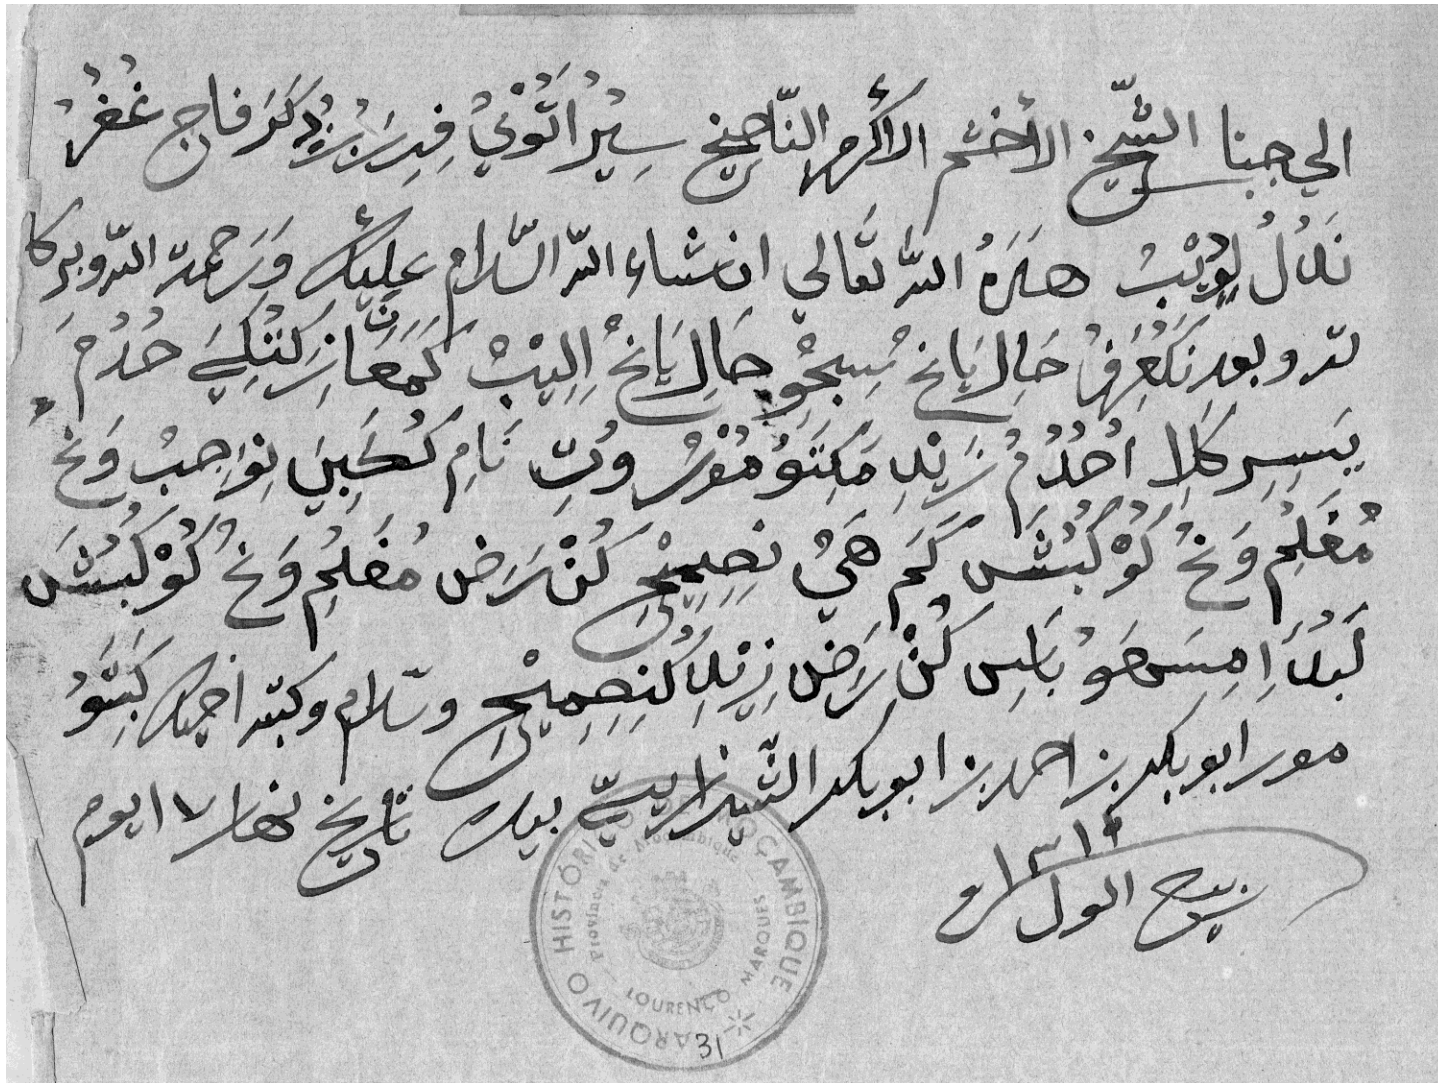 الي جبنا الشّيخ الأخشم الاكرم النّاصِحِ سِيُرُ اَتُوْنِيُ فِدِسَرُبِرُ دِكَرَفاج غُفِرُ
نَلاُلُ لِوُيْبُ هَلَهُ اللّه تَعَالي انشاء اللّه السّلام عليك وَرَحمة اللّه وبركا
ته وبعد نِكُعَرِفُ حَالِ يَانْغُ نِسِجَوُ حَالِ يَانْغُ اِلِيْبُ كَمَعَانَ زَكَتُكِيَ خُدُمَ
يَسِرِكَلاِ اُخُدُمُ زَيْلِ مَكِتَوُ مُوْسُ وُتِ تَامِ كُكَبِيَ نِوَاجِبُ وَنْغُ
مُعَلِمُ وَنْغُ كُوْكُبُشَ كَمَ هَيُ نِصِمِيْحِ كُنْ رَضِ مُعَلِمُ وَنْغُ كُوْكُبُشَ
لَبُدَ اِمِسَحَوُ بَاسِ كُنْ رَضِ زِيْلِ كُنِصِمِيْحِ وسّلام وكتبه اخيك كَبِتَوُ
مور ابوبكر بن احمد بن ابوبكر الشّيرازييّ بيده تاريخ نهار ١٧ ايوم
ربيع الول ١٣١٩
ARQUIVO HISTÓRICO DE MOÇAMBIQUE
Província de Moçambique
LOURENÇO MARQUES
31